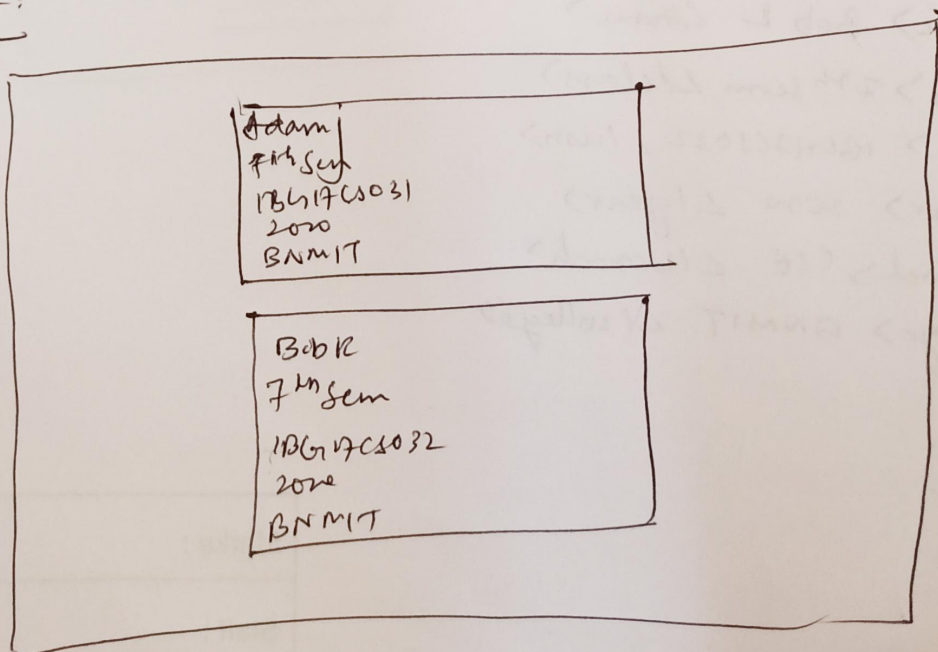 Adam
7th Sem
1BG17CS031
2020
BNMIT
Bob R
7th Sem
1BG17CS032
2020
BNMIT